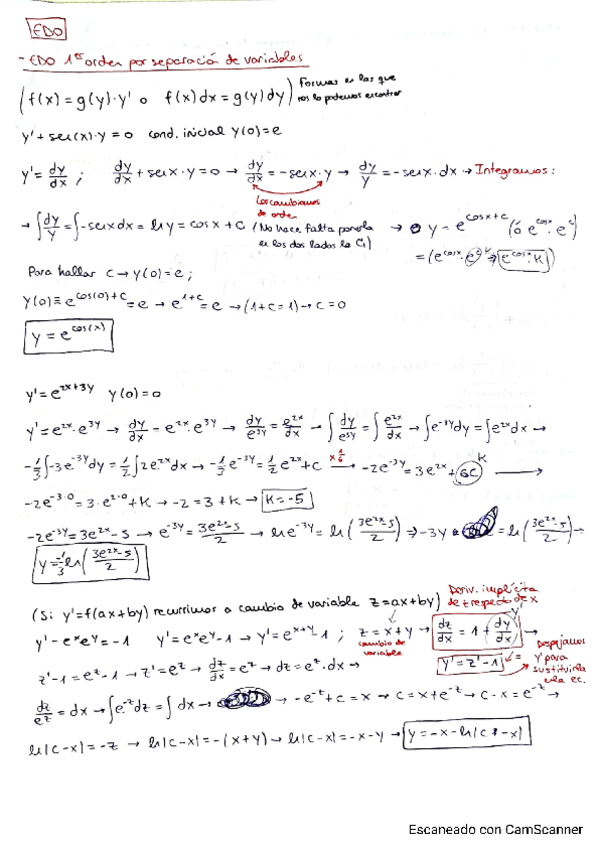 EDO
- EDO 1er orden por separación de variables
(f(x) = g(y)·y' o f(x)dx = g(y)dy) Formas en las que nos lo podemos encontrar
y' + sen(x)·y = 0 cond. inicial y(0) = e
y' = dy/dx ; dy/dx + senx·y = 0 → dy/dx = -senx·y → dy/y = -senx·dx → Integramos:
Los cambiamos de orden
→ ∫dy/y = ∫-senxdx = ln y = cosx + C (No hace falta ponerla en los dos lados la C1) → y = e^cosx+c (ó e^cosx · e^c)
= (e^cosx · e^c ⇒ e^cosx K)
Para hallar C → y(0) = e;
y(0) ≡ e^cos(0)+C = e → e^1+c = e → (1+C=1) → C = 0
y = e^cos(x)
y' = e^2x+3y y(0) = 0
y' = e^2x · e^3y → dy/dx = e^2x · e^3y → dy/e^3y = e^2x/dx → ∫dy/e^3y = ∫e^2x/dx → ∫e^-3y dy = ∫e^2x dx →
-1/3 ∫-3e^-3y dy = 1/2 ∫2e^2x dx → -1/3 e^-3y = 1/2 e^2x + C x6 → -2e^-3y = 3e^2x + 6C K →
-2e^-3·0 = 3·e^2·0 + K → -2 = 3 + K → K = -5
-2e^-3y = 3e^2x - 5 → e^-3y = 3e^2x-5/2 → ln e^-3y = ln(3e^2x-5/2) ⇒ -3y = ln(3e^2x-5/2) →
y = -1/3 ln(3e^2x-5/2)
(Si y' = f(ax+by) recurrimos a cambio de variable z = ax+by) Deriv. implícita de z respecto de x
y' - e^x e^y = -1 y' = e^x e^y - 1 → y' = e^x+y - 1 ; z = x+y → dz/dx = 1 + dy/dx y' →
cambio de variable
y' = z' - 1 Despejamos y' para sustituirla en la ec.
z' - 1 = e^z - 1 → z' = e^z → dz/dx = e^z → dz = e^z · dx →
dz/e^z = dx → ∫e^-z dz = ∫dx → -e^-z + C = x → C = x + e^-z → C - x = e^-z →
ln|C-x| = -z → ln|C-x| = -(x+y) → ln|C-x| = -x-y → y = -x - ln|C-x|
Escaneado con CamScanner